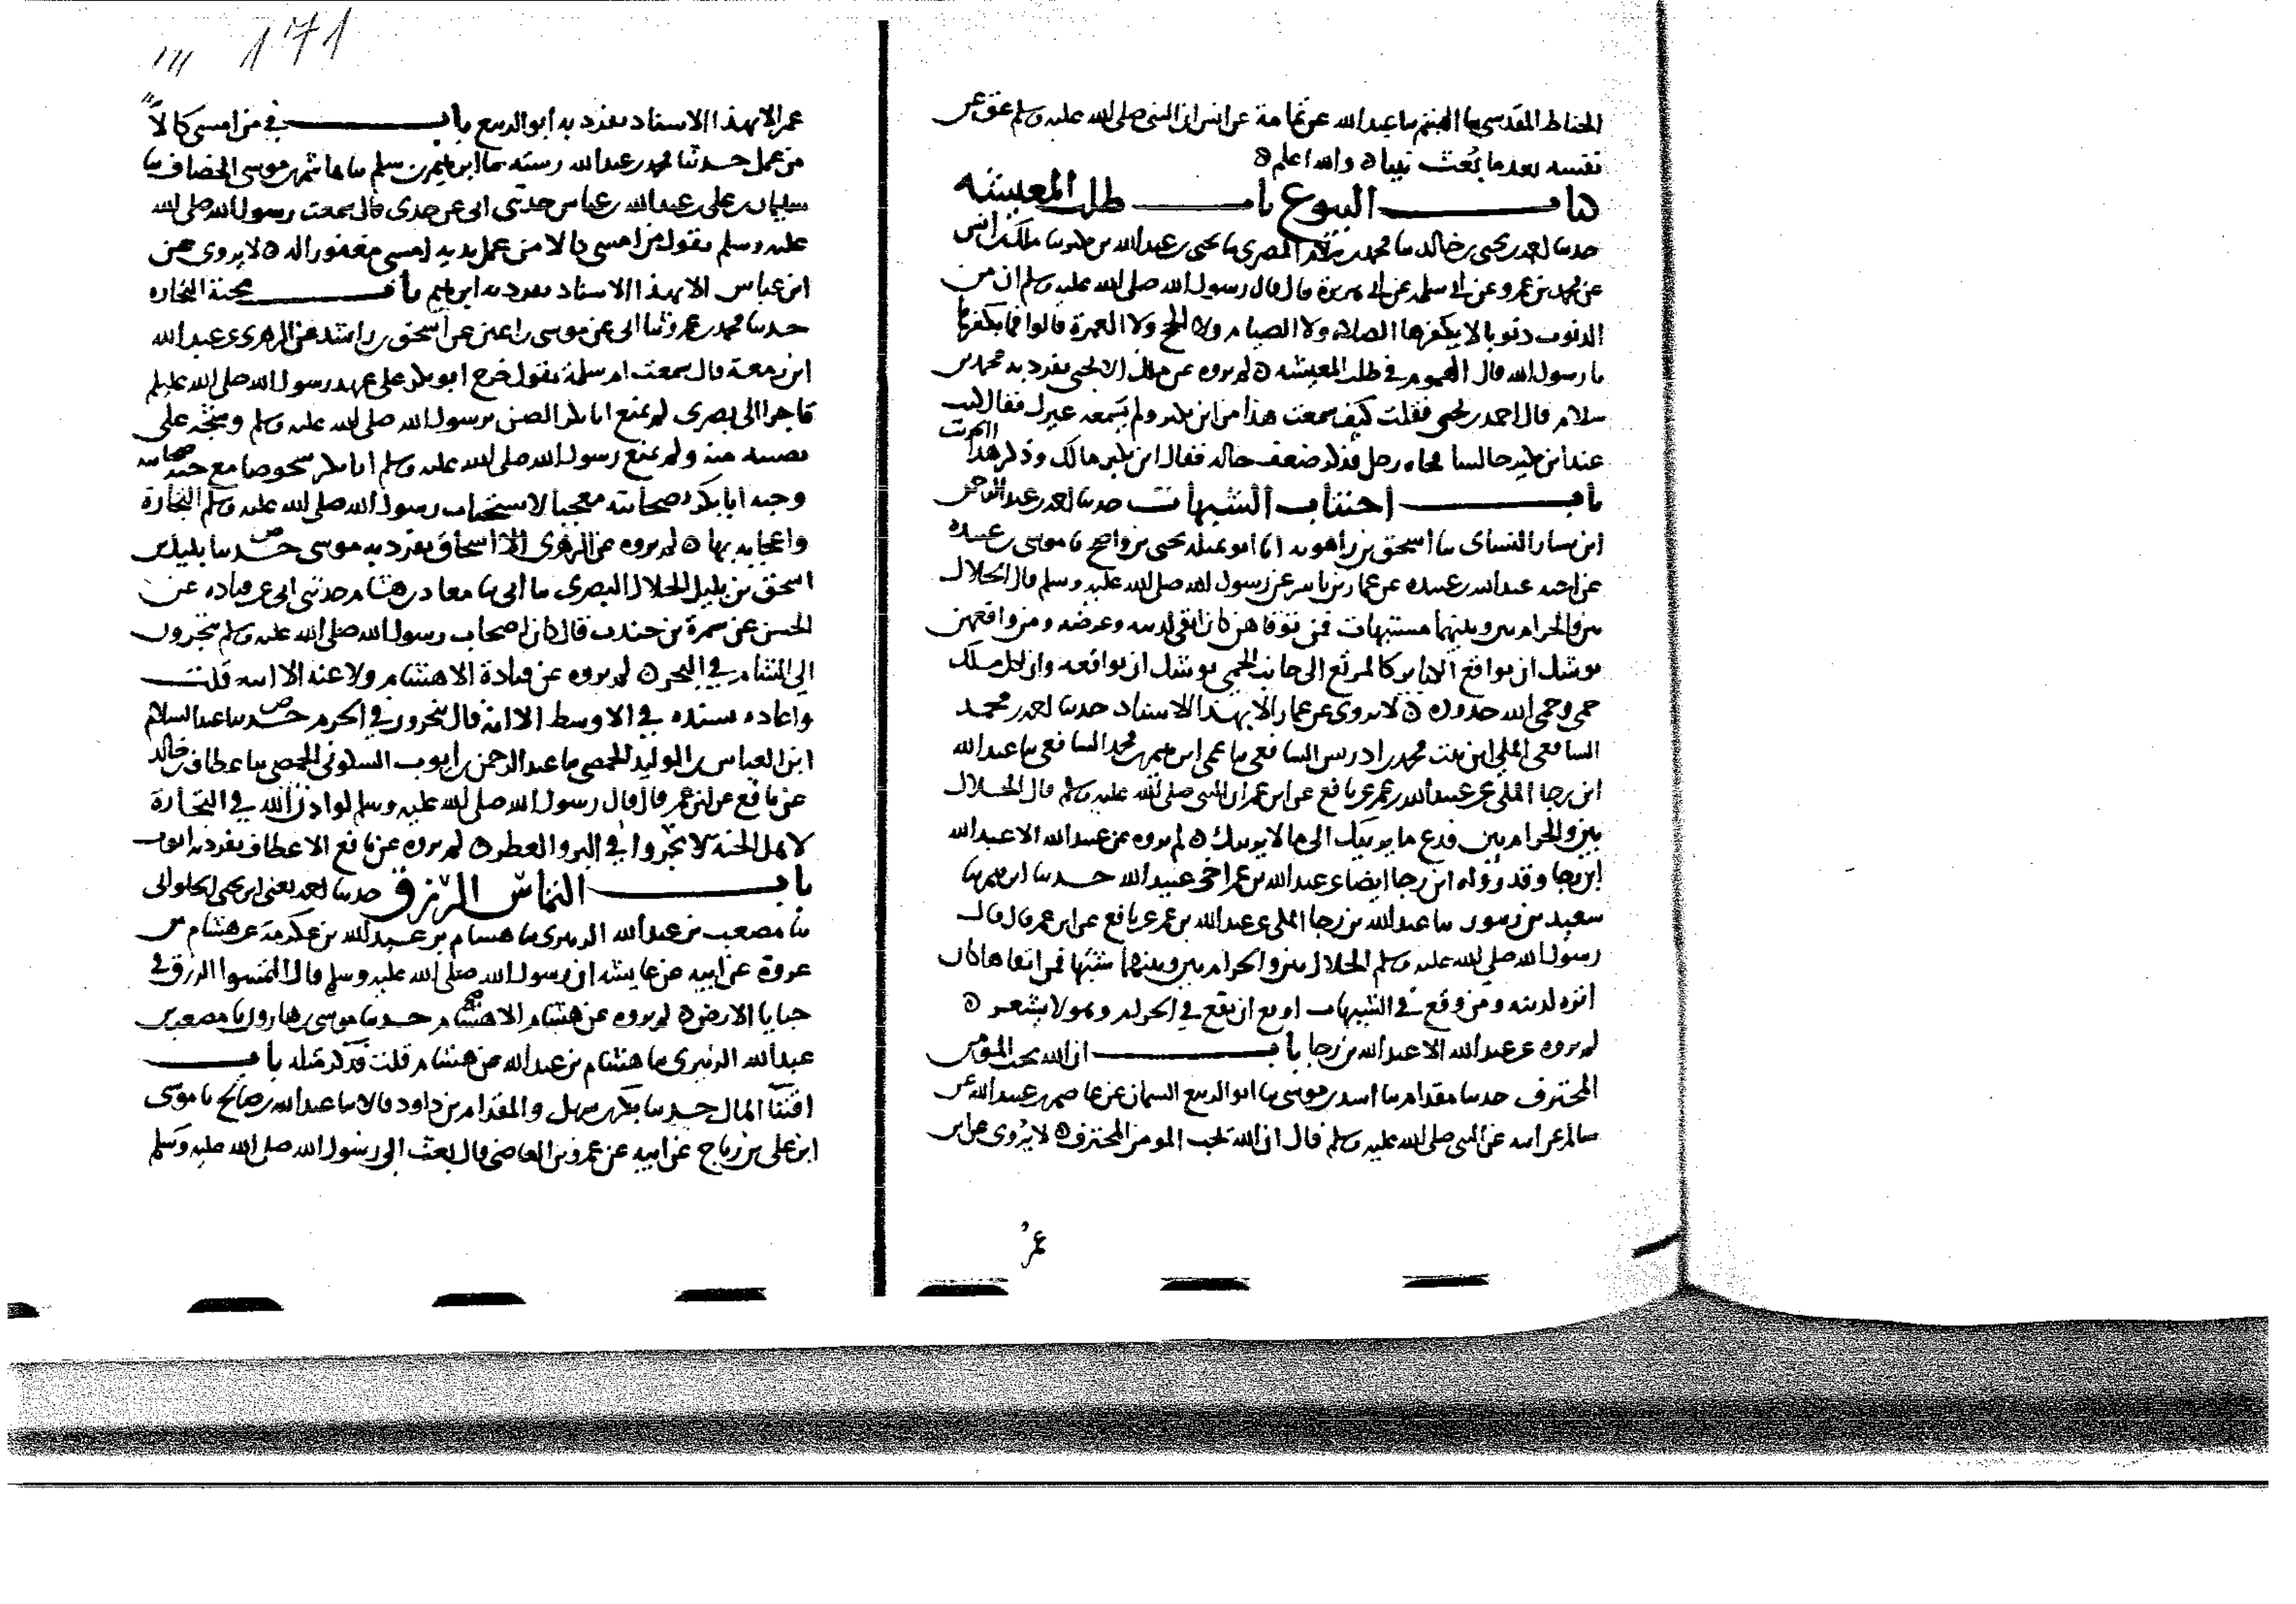 الحناط المقدسي ثنا الهيثم ثنا عبد الله عن ثمامة عن انس ان النبي صلى الله عليه وسلم عق عن
نفسه بعد ما بعث نبيا ه والله اعلم ه
كتاب البيوع باب طلب المعيشه
حدثنا احمد بن يحيى بن خالد ثنا محمد بن سلام المصري ثنا يحيى بن عبد الله بن بكير ثنا ملك بن انس
عن محمد بن عمرو عن ابي سلمه عن ابي هريرة قال قال رسول الله صلى الله عليه وسلم ان من
الذنوب ذنوبا لا يكفرها الصلاه ولا الصيام ولا الحج ولا العمرة قالوا فما يكفرها
يا رسول الله قال الهموم في طلب المعيشه ه لم يروه عن ملك الا يحيى تفرد به محمد بن
سلام قال احمد بن يحيى فقلت كيف سمعت هذا من ابن بكير ولم يسمعه غيرك فقال كنت
عند ابن بكير جالسا فجاه رجل فذكر ضعف حاله فقال ابن بكير مالك وذكر هذا الحديث
باب اجتناب الشبهات حدثنا احمد بن عبد الرحمن
ابن يسار النساى ثنا اسحق بن راهويه انا ابو تميله يحيى بن واضح ثنا موسى بن عبيده
عن اخيه عبد الله بن عبيده عن عمار بن ياسر عن رسول الله صلى الله عليه وسلم قال الحلال
بين والحرام بين وبينهما مشتبهات فمن توقاهن كان اتقى لدينه وعرضه ومن واقعهن
يوشك ان يواقع الكباير كالمرتع الى جانب الحمى يوشك ان يواقعه وان لكل ملك
حمى وحمى الله حدوده ه لا يروى عن عمار الا بهذا الاسناد حدثنا احمد بن محمد
الشافعي المكي ابن بنت محمد بن ادريس الشافعي ثنا عمي ابرهيم بن محمد الشافعي ثنا عبد الله
ابن رجا المكي عن عبيد الله بن عمر عن نافع عن ابن عمر ان النبي صلى الله عليه وسلم قال الحلال
بين والحرام بين فدع ما يريبك الى ما لا يريبك ه لم يروه عن عبيد الله الا عبد الله
ابن رجا وقد رواه ابن رجا ايضا عن عبد الله بن عمر اخي عبيد الله حدثنا ابرهيم ثنا
سعيد بن منصور ثنا عبد الله بن رجا المكي عن عبد الله بن عمر عن نافع عن ابن عمر قال قال
رسول الله صلى الله عليه وسلم الحلال بين والحرام بين وبينهما مشتبها فمن اتقاها كان
انزه لدينه ومن وقع في الشبهات اوشع ان يقع في الحرام وهو لا يشعر ه
لم يروه عن عبد الله الا عبد الله بن رجا باب ان الله يحب المؤمن
المحترف حدثنا مقدام ثنا اسد بن موسى ثنا ابو الربيع السمان عن عاصم بن عبيد الله عن
سالم عن ابيه عن النبي صلى الله عليه وسلم قال ان الله يحب المومن المحترف ه لا يروى عن ابن
عمر
١٧١
عمر الا بهذا الاسناد تفرد به ابو الربيع باب في من امسى كالا
من عمل حدثنا محمد بن عبد الله رسته ثنا ابرهيم بن سلم ثنا هاشم بن موسى الخصاف ثنا
سليمان بن علي بن عبد الله بن عباس حدثني ابي عن جدى قال سمعت رسول الله صلى الله
عليه وسلم يقول من امسى كالا من عمل يديه امسى مغفورا له ه لا يروى عن
ابن عباس الا بهذا الاسناد تفرد به ابرهيم باب محبة التجاره
حدثنا محمد بن عمرو ثنا ابي عن موسى بن اعين عن اسحق بن راشد عن الزهري عن عبد الله
ابن زمعة قال سمعت ام سلمة تقول خرج ابو بكر على عهد رسول الله صلى الله عليه وسلم
تاجرا الى بصرى لم يمنع ابا بكر الضن برسول الله صلى الله عليه وسلم وشحه على
نصيبه منه ولم يمنع رسول الله صلى الله عليه وسلم ابا بكر شخوصا مع حبه صحابته
وحبه ابا بكر وصحابته معجبا لاستحباب رسول الله صلى الله عليه وسلم التجارة
واعجابه بها ه لم يروه عن الزهرى الا اسحاق تفرد به موسى حدثنا بلبل بن
اسحق بن بلبل الخلال البصرى ثنا ابي ثنا معاذ بن هشام حدثني ابي عن قتاده عن
الحسن عن سمرة بن جندب قال كان اصحاب رسول الله صلى الله عليه وسلم يتجرون
الى الشام في البحر ه لم يروه عن قتادة الا هشام ولا عنه الا ابنه قلت
واعاده بسنده في الاوسط الا انه قال يتجرون في الحرم حدثنا عبد السلام
ابن العباس بن الوليد الحمصي ثنا عبد الرحمن بن ايوب السكوني الحمصي ثنا عطاف بن خالد
عن نافع عن ابن عمر قال قال رسول الله صلى الله عليه وسلم لو اذن الله في التجارة
لاهل الجنة لاتجروا في البز والعطر ه لم يروه عن نافع الا عطاف تفرد به ابن ايوب
باب التماس الرزق حدثنا احمد يعني ابن يحيى الحلواني
ثنا مصعب بن عبد الله الزبيرى ثنا هشام بن عبد الله بن عكرمة عن هشام بن
عروة عن ابيه عن عايشه ان رسول الله صلى الله عليه وسلم قال التمسوا الرزق في
خبايا الارض ه لم يروه عن هشام الا هشام حدثنا موسى بن هارون ثنا مصعب بن
عبد الله الزبيرى ثنا هشام بن عبد الله عن هشام قلت فذكر مثله باب
اقتنآ المال حدثنا بكر بن سهل والمقدام بن داود قالا ثنا عبد الله بن صالح ثنا موسى
ابن علي بن رباح عن ابيه عن عمرو بن العاص قال بعث الى رسول الله صلى الله عليه وسلم